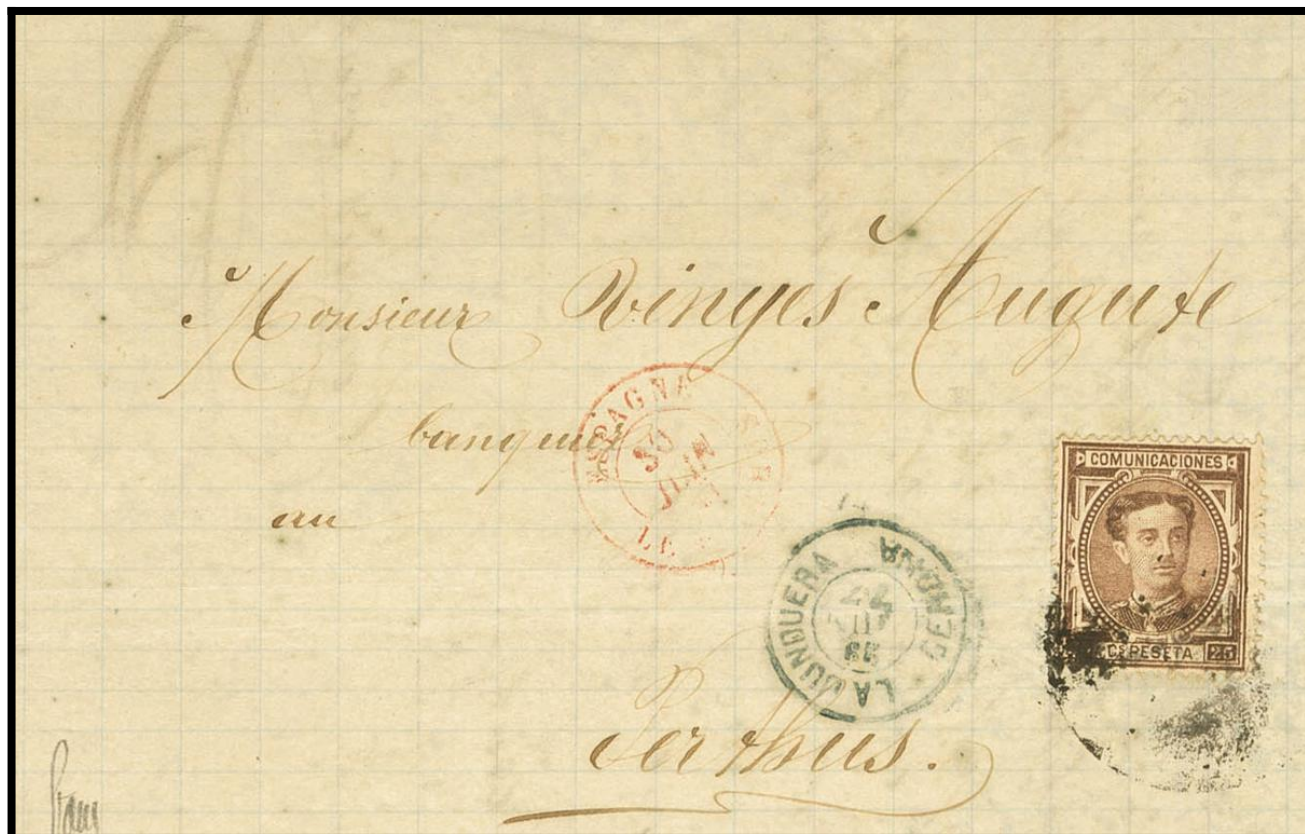 Monsieur Vinyes Auguste
banquier
au
Perthus.
ESPAGNE
30
JUIN
LE
LA JUNQUERA
GERONA
COMUNICACIONES
Cs PESETA 25